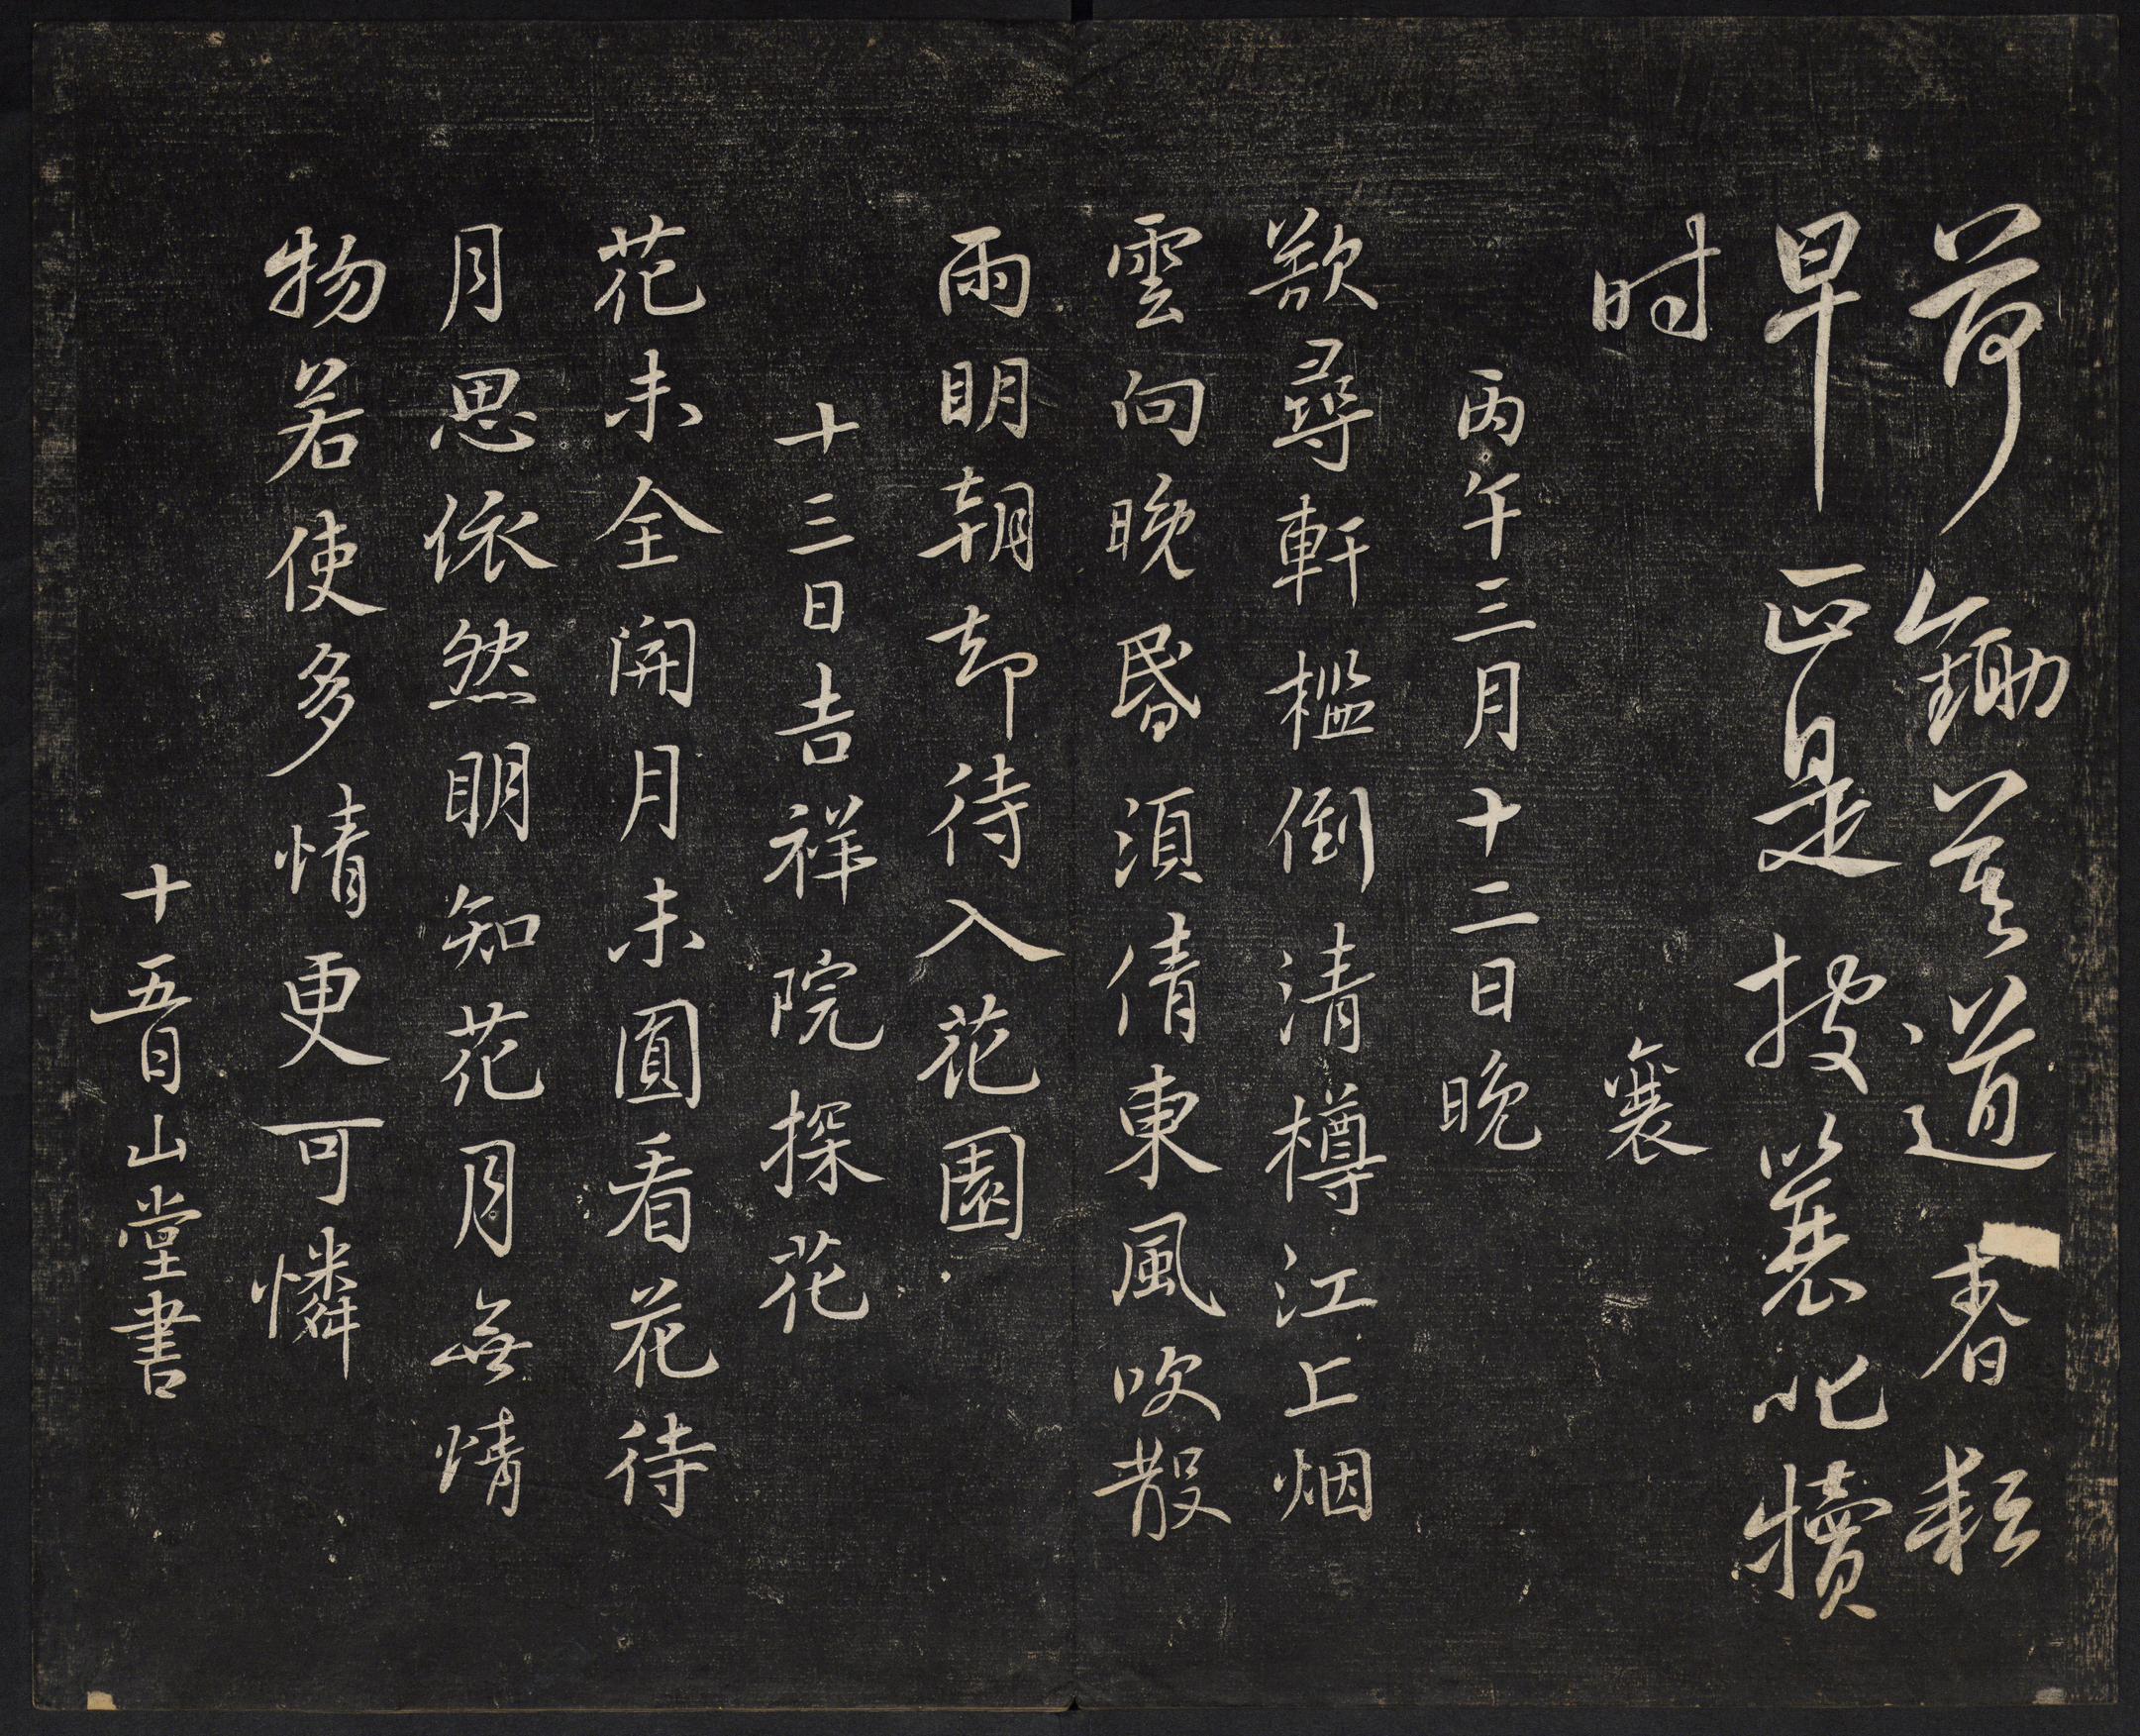 荷鋤莫道春耘
早正是披蓑叱犢
时
襄
丙午三月十二日晚
欲尋軒檻倒清樽江上烟
雲向晚昏須倩東風吹散
雨明朝却待入花園
十三日吉祥院探花
花未全開月未圓看花待
月思依然明知花月無情
物若使多情更可憐
十五日山堂書